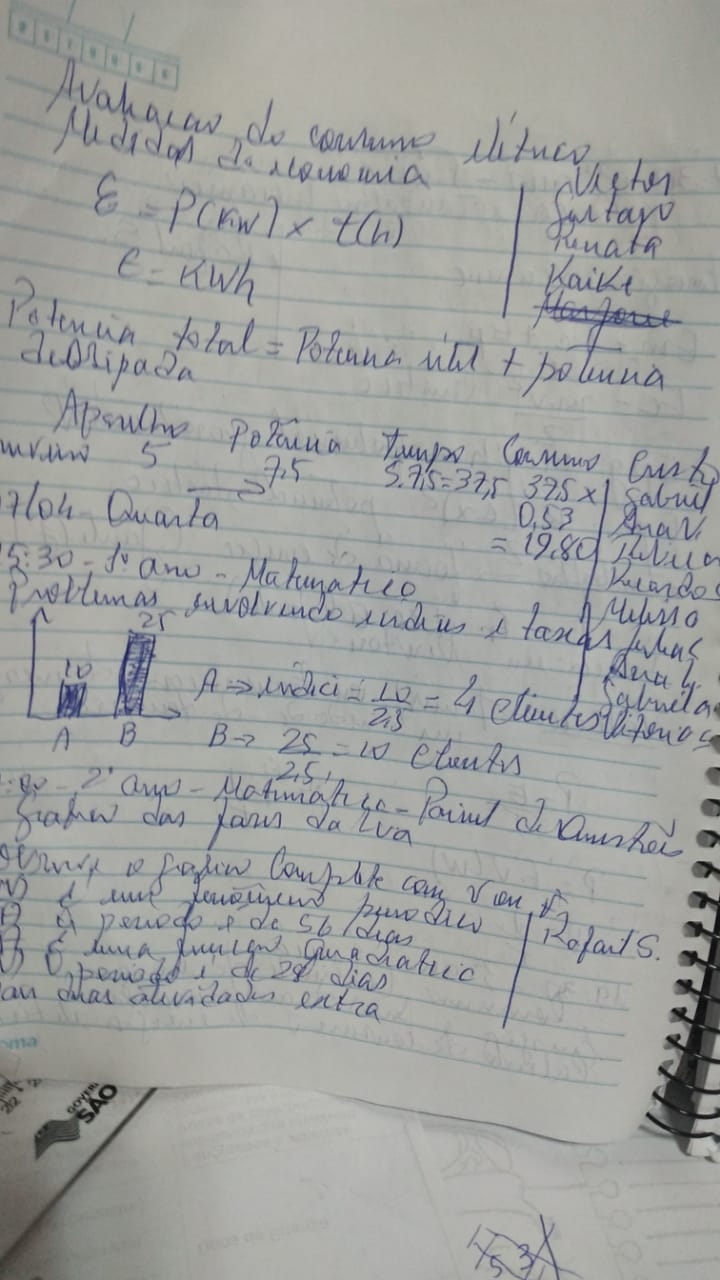 Avaliação do consumo elétrico
Medidas da economia
E = P(KW) x t(h)
E = KWh
Victor
Gustavo
Renata
Kaike
Potencia total = Potencia útil + potencia
dissipada
Aparelho Potência Tempo Consumo Custo
5 7,5 5.7,5=37,5 37,5 x
0,53
= 19,80
Gabriel
Ana V.
Ricardo
Ana
Gabriela
7/04 Quarta
5:30 - 1º ano - Matematica
Problemas envolvendo indices e taxas
10 25
A B
A → indice = 10/2,5 = 4 clientes
B → 25/2,5 = 10 clientes
2º ano - Matematica - Painel de Questões
Grafico das fases da lua
o grafico Complete com V ou F
V) é um fenômeno periodico
) O periodo é de 56 dias
) É uma função quadratica
) O periodo é de 28 dias
duas atividades extra
Rafael S.
GOVER
SÃO